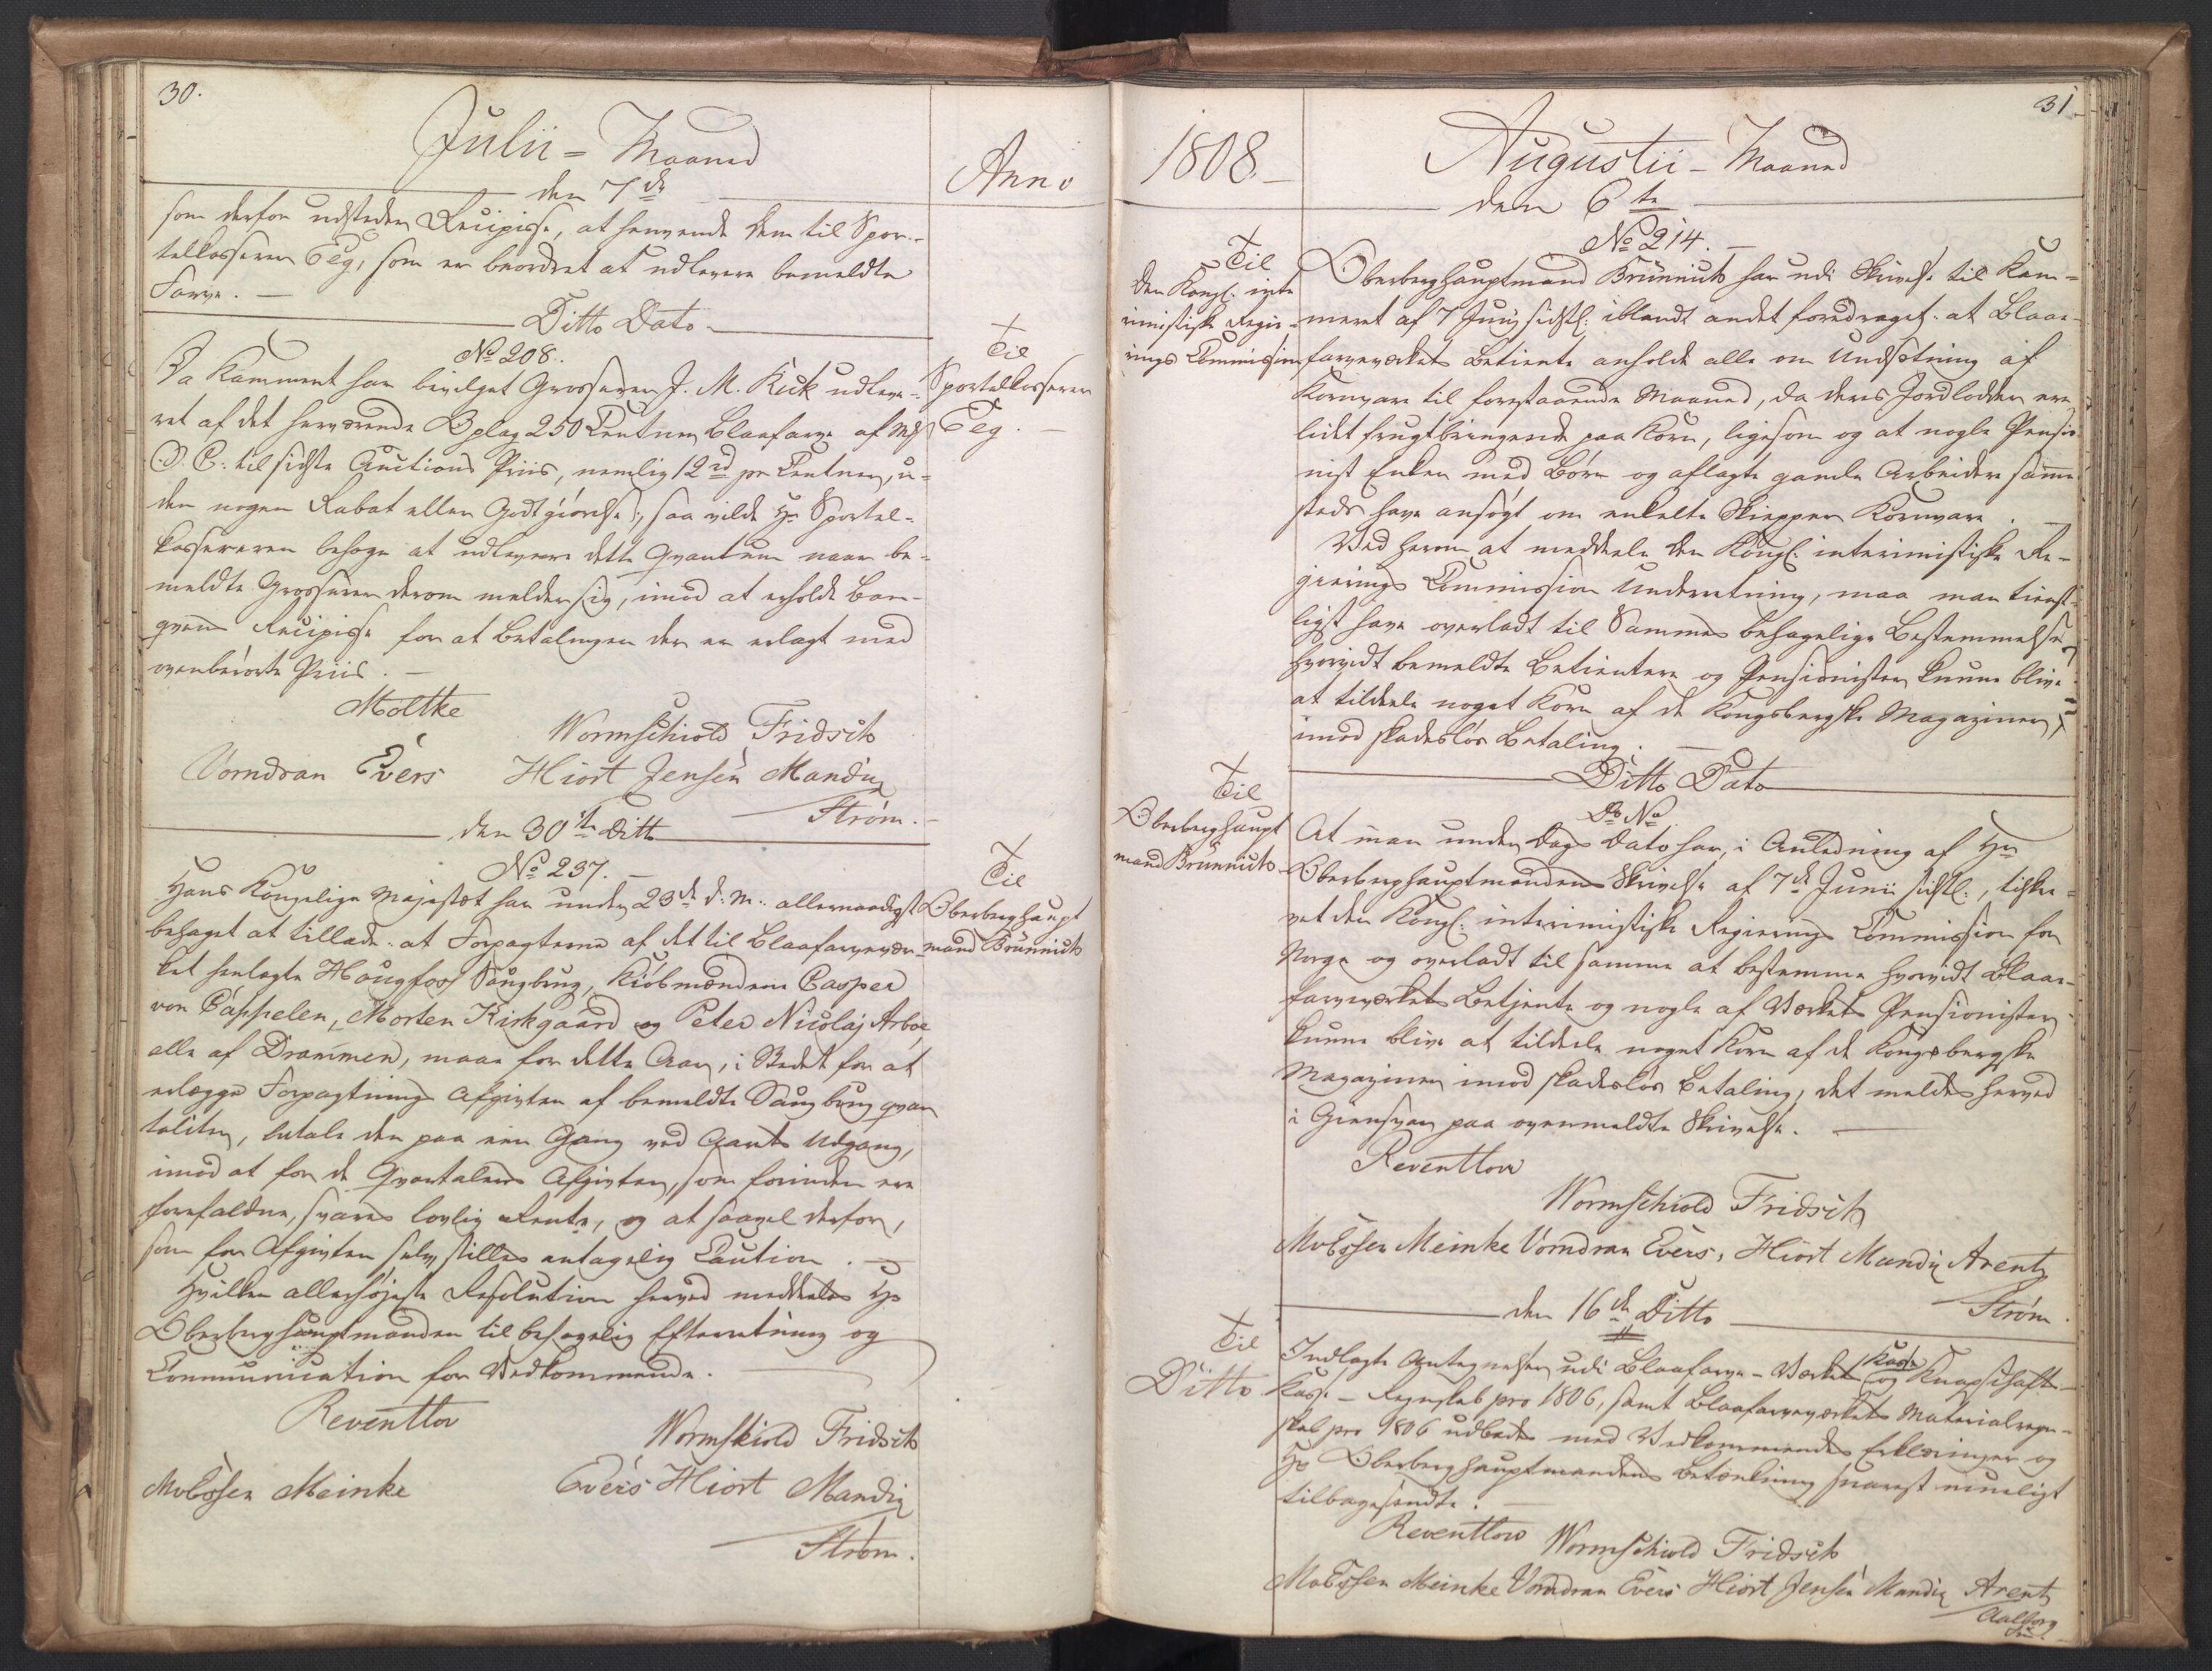 30.
Julii - Maaned
Anno
den 7de
som derfor udsteder Recipisse, at henvende dem til Spor-
telkasserer Eeg, som er beordret at udlevere bemeldte
Farve. —
Ditto Dato
No 208.
Til
Sportelkasserer
Eeg. —
Da Kammeret har bevilget Grosserer J. M. Keck udleve-
ret af det herværende Oplag 250 Centner Blaafarve af
O. C. til sidste Auctions Priis, nemlig 12 rd pr Centner, u-
den nogen Rabat eller Godtgiørelse; saa vilde Hr Sportel-
kassereren behage at udlevere dette Qvantum naar be-
meldte Grosserer derom melder sig, imod at erholde
Recipisse for at Betalingen der er erlagt med
ovenberørte Priis. —
Moltke
Wormschiold Fridsch
Vorndran Evers Hiort Jensen Mandix
Strøm.
den 30te Ditto
No 237. —
Til
Oberberghaupt
mand Brünnich
Hans Kongelige Majestæt har under 23de d. M. allernaadigst
behaget at tillade: at Forpagterne af det til Blaafarveværk-
ket henlagte Hougfoss Saugbrug, Kiøbmændene Casper
von Cappelen, Morten Kirkgaard og Peter Nicolaj Arboe
alle af Drammen, maae for dette Aar, i Stedet for at
erlægge Forpagtnings Afgivten af bemeldte Saugbrug qvar
taliter, betale den paa een Gang ved Aarets Udgang,
imod at for de Qvartalers Afgivter, som forinden ere
forefaldne, svares lovlig Rente, og at saavel derfor,
som for Afgivten selv stilles antagelig Caution. —
Hvilken allerhøjeste Resolution herved meddeles Hr
Oberberghauptmanden til behagelig Efterretning og
Communication for Vedkommende.
Reventlov
Wormskiold Fridsch
Møsser Meinke Evers Hiort Mandix
Strøm.
31
1808 —
Augustii - Maaned
den 6te
No 214. —
Til
den Kongl: inte
rimistiske Regie-
rings Commission
Oberberghauptmand Brünnich har udi Skrivelse til Kam-
meret af 7 Junij sidstl: iblandt andet foredraget: at Blaae-
farveværkets Betiente anholde alle om Undsætning af
Kornvare til forestaaende Maaned, da deres Jordlodder ere
lidet frugtbringende paa Korn, ligesom og at nogle Pensio
nist Enker med Børn og aflagte gamle Arbeidere samme
steds have ansøgt om enkelte Skiepper Kornvare. —
Ved herom at meddele den Kongl: interimistiske Re-
gierings Commission Underretning, maa man tienst-
ligst have overladt til Sammes behagelige Bestemmelse,
hvorvidt bemeldte Betientere og Pensionister kunne blive
at tildeele noget Korn af de Kongsbergske Magaziner,
imod skadesløs Betaling. —
Ditto Dato
Do No
Til
Oberberghaupt
mand Brünnich
At man under Dags Dato har, i Anledning af Hr
Oberberghauptmandens Skrivelse af 7de Junii sidstl:, tilskre-
vet den Kongl: interimistiske Regierings Commission for
Norge og overladt til samme at bestemme hvorvidt Blaae-
farveværkets Betjente og nogle af Værkets Pensionister
kunne blive at tildeele noget Korn af de Kongsbergske
Magaziner imod skadesløs Betaling, det meldes herved
i Giensvar paa ovenmeldte Skrivelse. —
Reventlow
Wormschiold Fridsch
Møsser Meinke Vorndran Evers, Hiort Mandix Arentz
Strøm.
den 16de Ditto
Til
Ditto
Indlagte Antegnelser udi Blaafarve-Værkets Kasse og Knapschafts
Kasse-Regnskab pro 1806, samt Blaafarveværkets Materialregn-
skab pro 1806 udbedes med Vedkommendes Erklæringer og
Hr Oberberghauptmandens Betænkning snarest mueligt
tilbagesendte. —
Reventlow Wormschiold Fridsch
Møsser Meinke Vorndran Evers Hiort Jensen Mandix Arentz
Aalborg